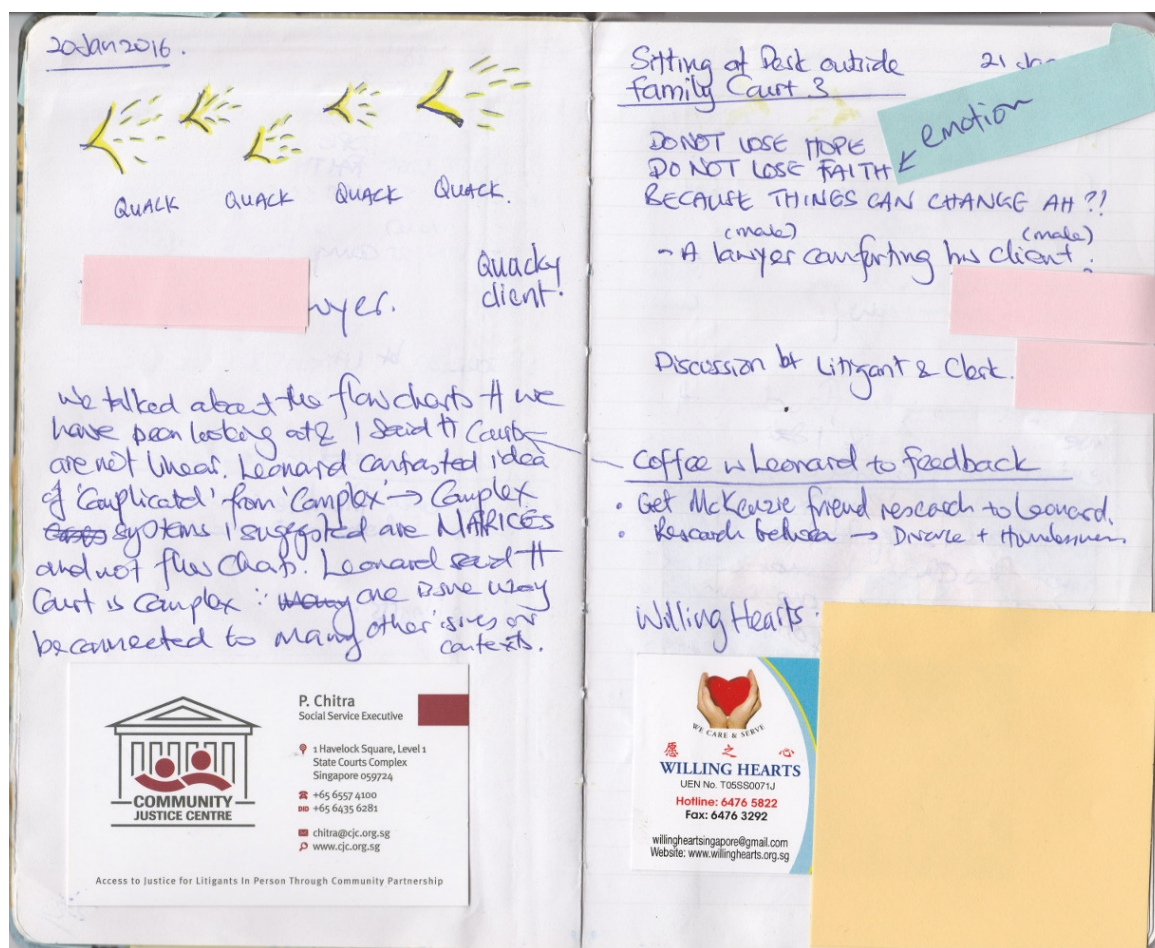 20 Jan 2016.
QUACK QUACK QUACK QUACK.
Quacky
client!
wyer.
We talked about the flow charts tt we
have been looking at & I said tt Courts
are not linear. Leonard contrasted idea
of 'Complicated' from 'Complex' → Complex
systems I suggested are MATRICES
and not flow charts. Leonard said tt
Court is Complex ∵ many one issue may
be connected to many other issues or
contexts.
COMMUNITY
JUSTICE CENTRE
P. Chitra
Social Service Executive
1 Havelock Square, Level 1
State Courts Complex
Singapore 059724
+65 6557 4100
DID +65 6435 6281
chitra@cjc.org.sg
www.cjc.org.sg
Access to Justice for Litigants In Person Through Community Partnership
Sitting at Desk outside
Family Court 3
21 Ja
emotion
DO NOT LOSE HOPE
DO NOT LOSE FAITH
BECAUSE THINGS CAN CHANGE AH ?!
(male) (male)
- A lawyer comforting his client.
Discussion bt Litigant & Clerk.
Coffee w Leonard to feedback
• Get McKenzie friend research to Leonard.
• Research between → Divorce + Homelessness
Willing Hearts.
WE CARE & SERVE
愿之心
WILLING HEARTS
UEN No. T05SS0071J
Hotline: 6476 5822
Fax: 6476 3292
willingheartssingapore@gmail.com
Website: www.willinghearts.org.sg